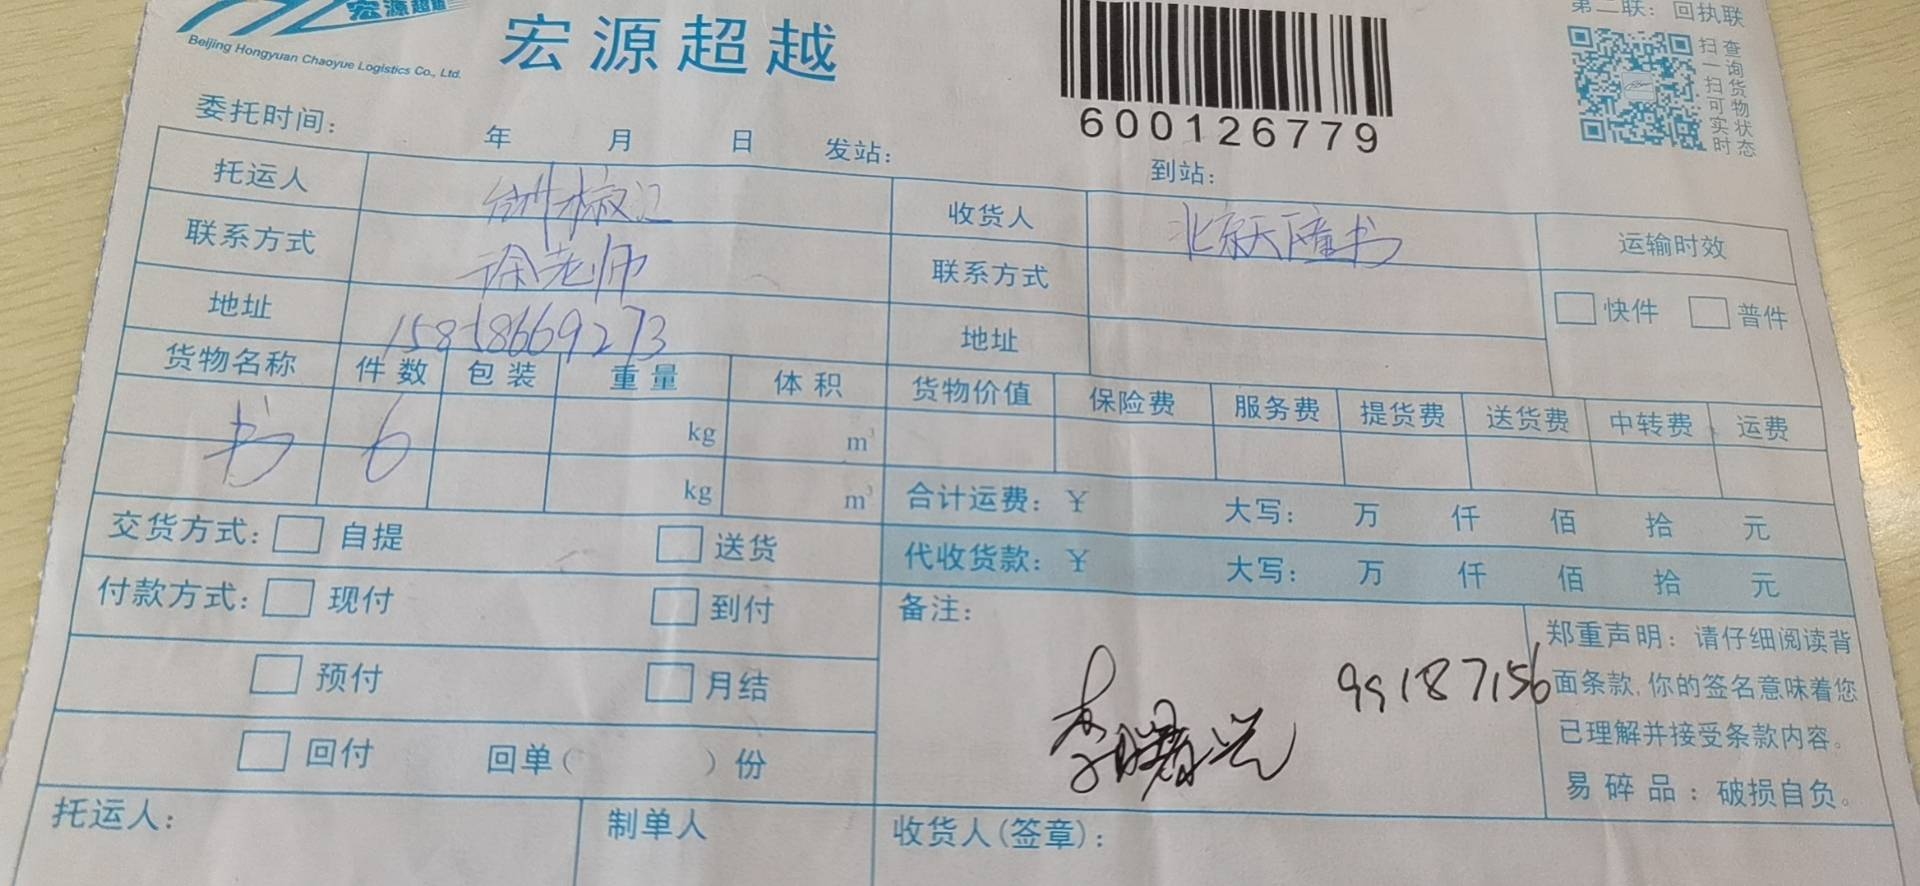 宏源超越
Beijing Hongyuan Chaoyue Logistics Co., Ltd.
宏源超越
600126779
第二联：回执联
扫一扫可实时
查询货物状态
委托时间： 年 月 日 发站： 到站：
托运人 台州椒江 收货人 北京天 书 运输时效
联系方式 徐老师 联系方式 快件 普件
地址 15858669273 地址
货物名称 件数 包装 重量 体积 货物价值 保险费 服务费 提货费 送货费 中转费 运费
书 6 kg m³
kg m³ 合计运费：￥ 大写： 万 仟 佰 拾 元
交货方式： 自提 送货 代收货款：￥ 大写： 万 仟 佰 拾 元
付款方式： 现付 到付 备注：
预付 月结
回付 回单（ ）份
李 兴 99187156
郑重声明：请仔细阅读背
面条款,你的签名意味着您
已理解并接受条款内容。
易碎品：破损自负。
托运人： 制单人 收货人(签章)：